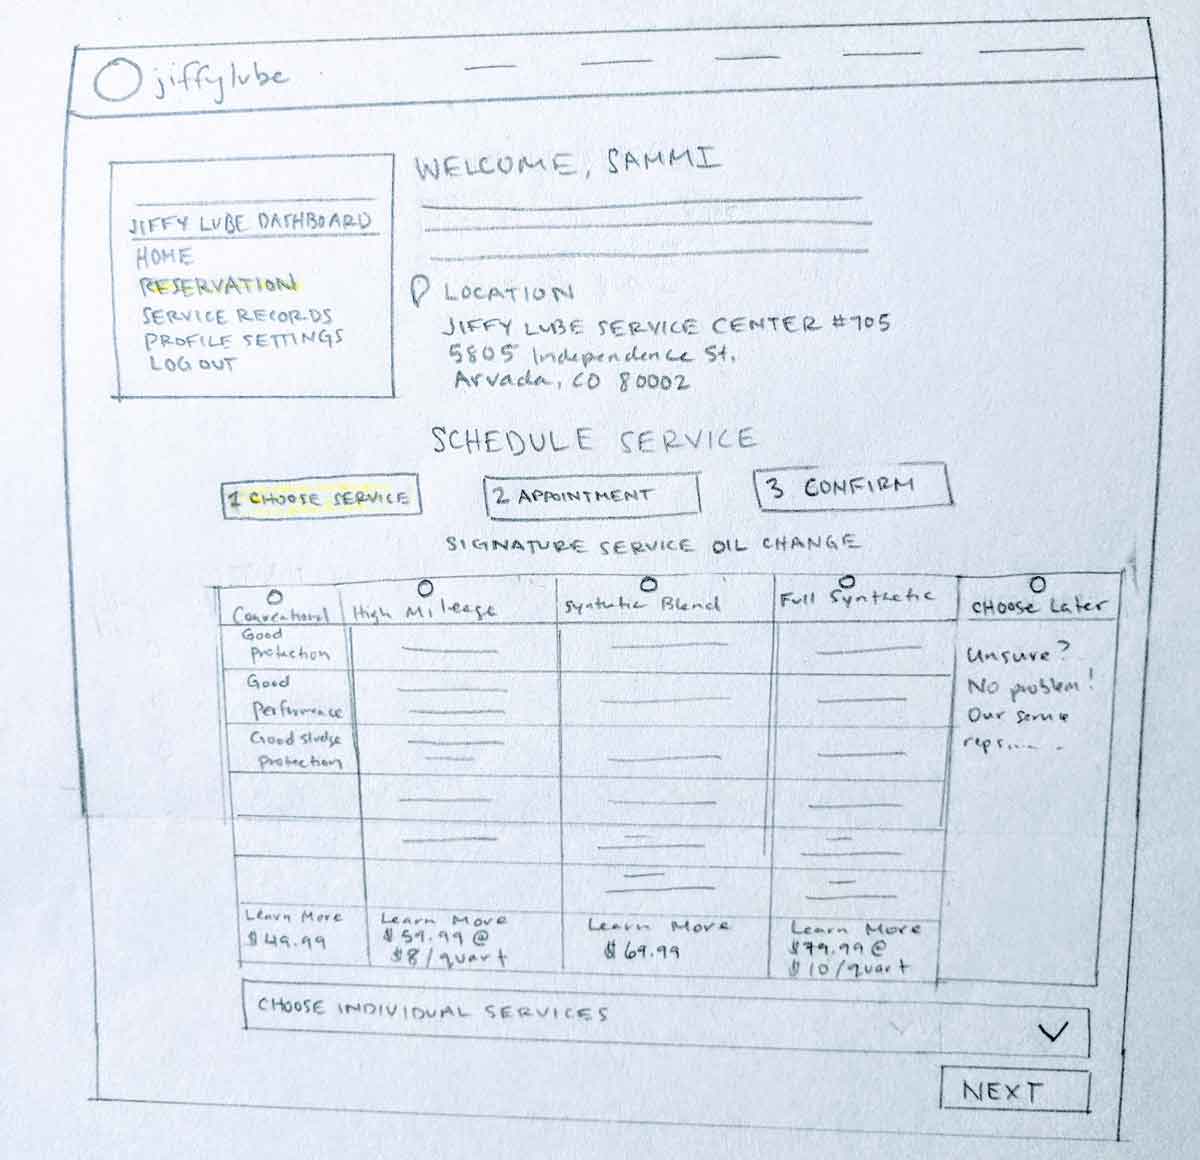 jiffylube
WELCOME, SAMMI
JIFFY LUBE DASHBOARD
HOME
RESERVATION
SERVICE RECORDS
PROFILE SETTINGS
LOG OUT
LOCATION
JIFFY LUBE SERVICE CENTER #705
5805 Independence St.
Arvada, CO 80002
SCHEDULE SERVICE
1 CHOOSE SERVICE
2 APPOINTMENT
3 CONFIRM
SIGNATURE SERVICE OIL CHANGE
Conventional
High Mileage
Synthetic Blend
Full Synthetic
CHOOSE Later
Good
protection
Good
performance
Good sludge
protection
Unsure?
No problem!
Our service
reps.....
Learn More
$49.99
Learn More
$59.99 @
$8/quart
Learn More
$69.99
Learn More
$79.99 @
$10/quart
CHOOSE INDIVIDUAL SERVICES
NEXT